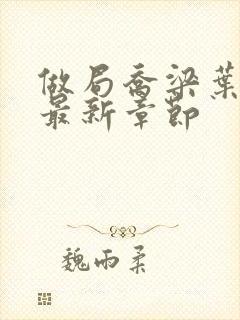 做局乔梁葉
最新章節
魏雨柔